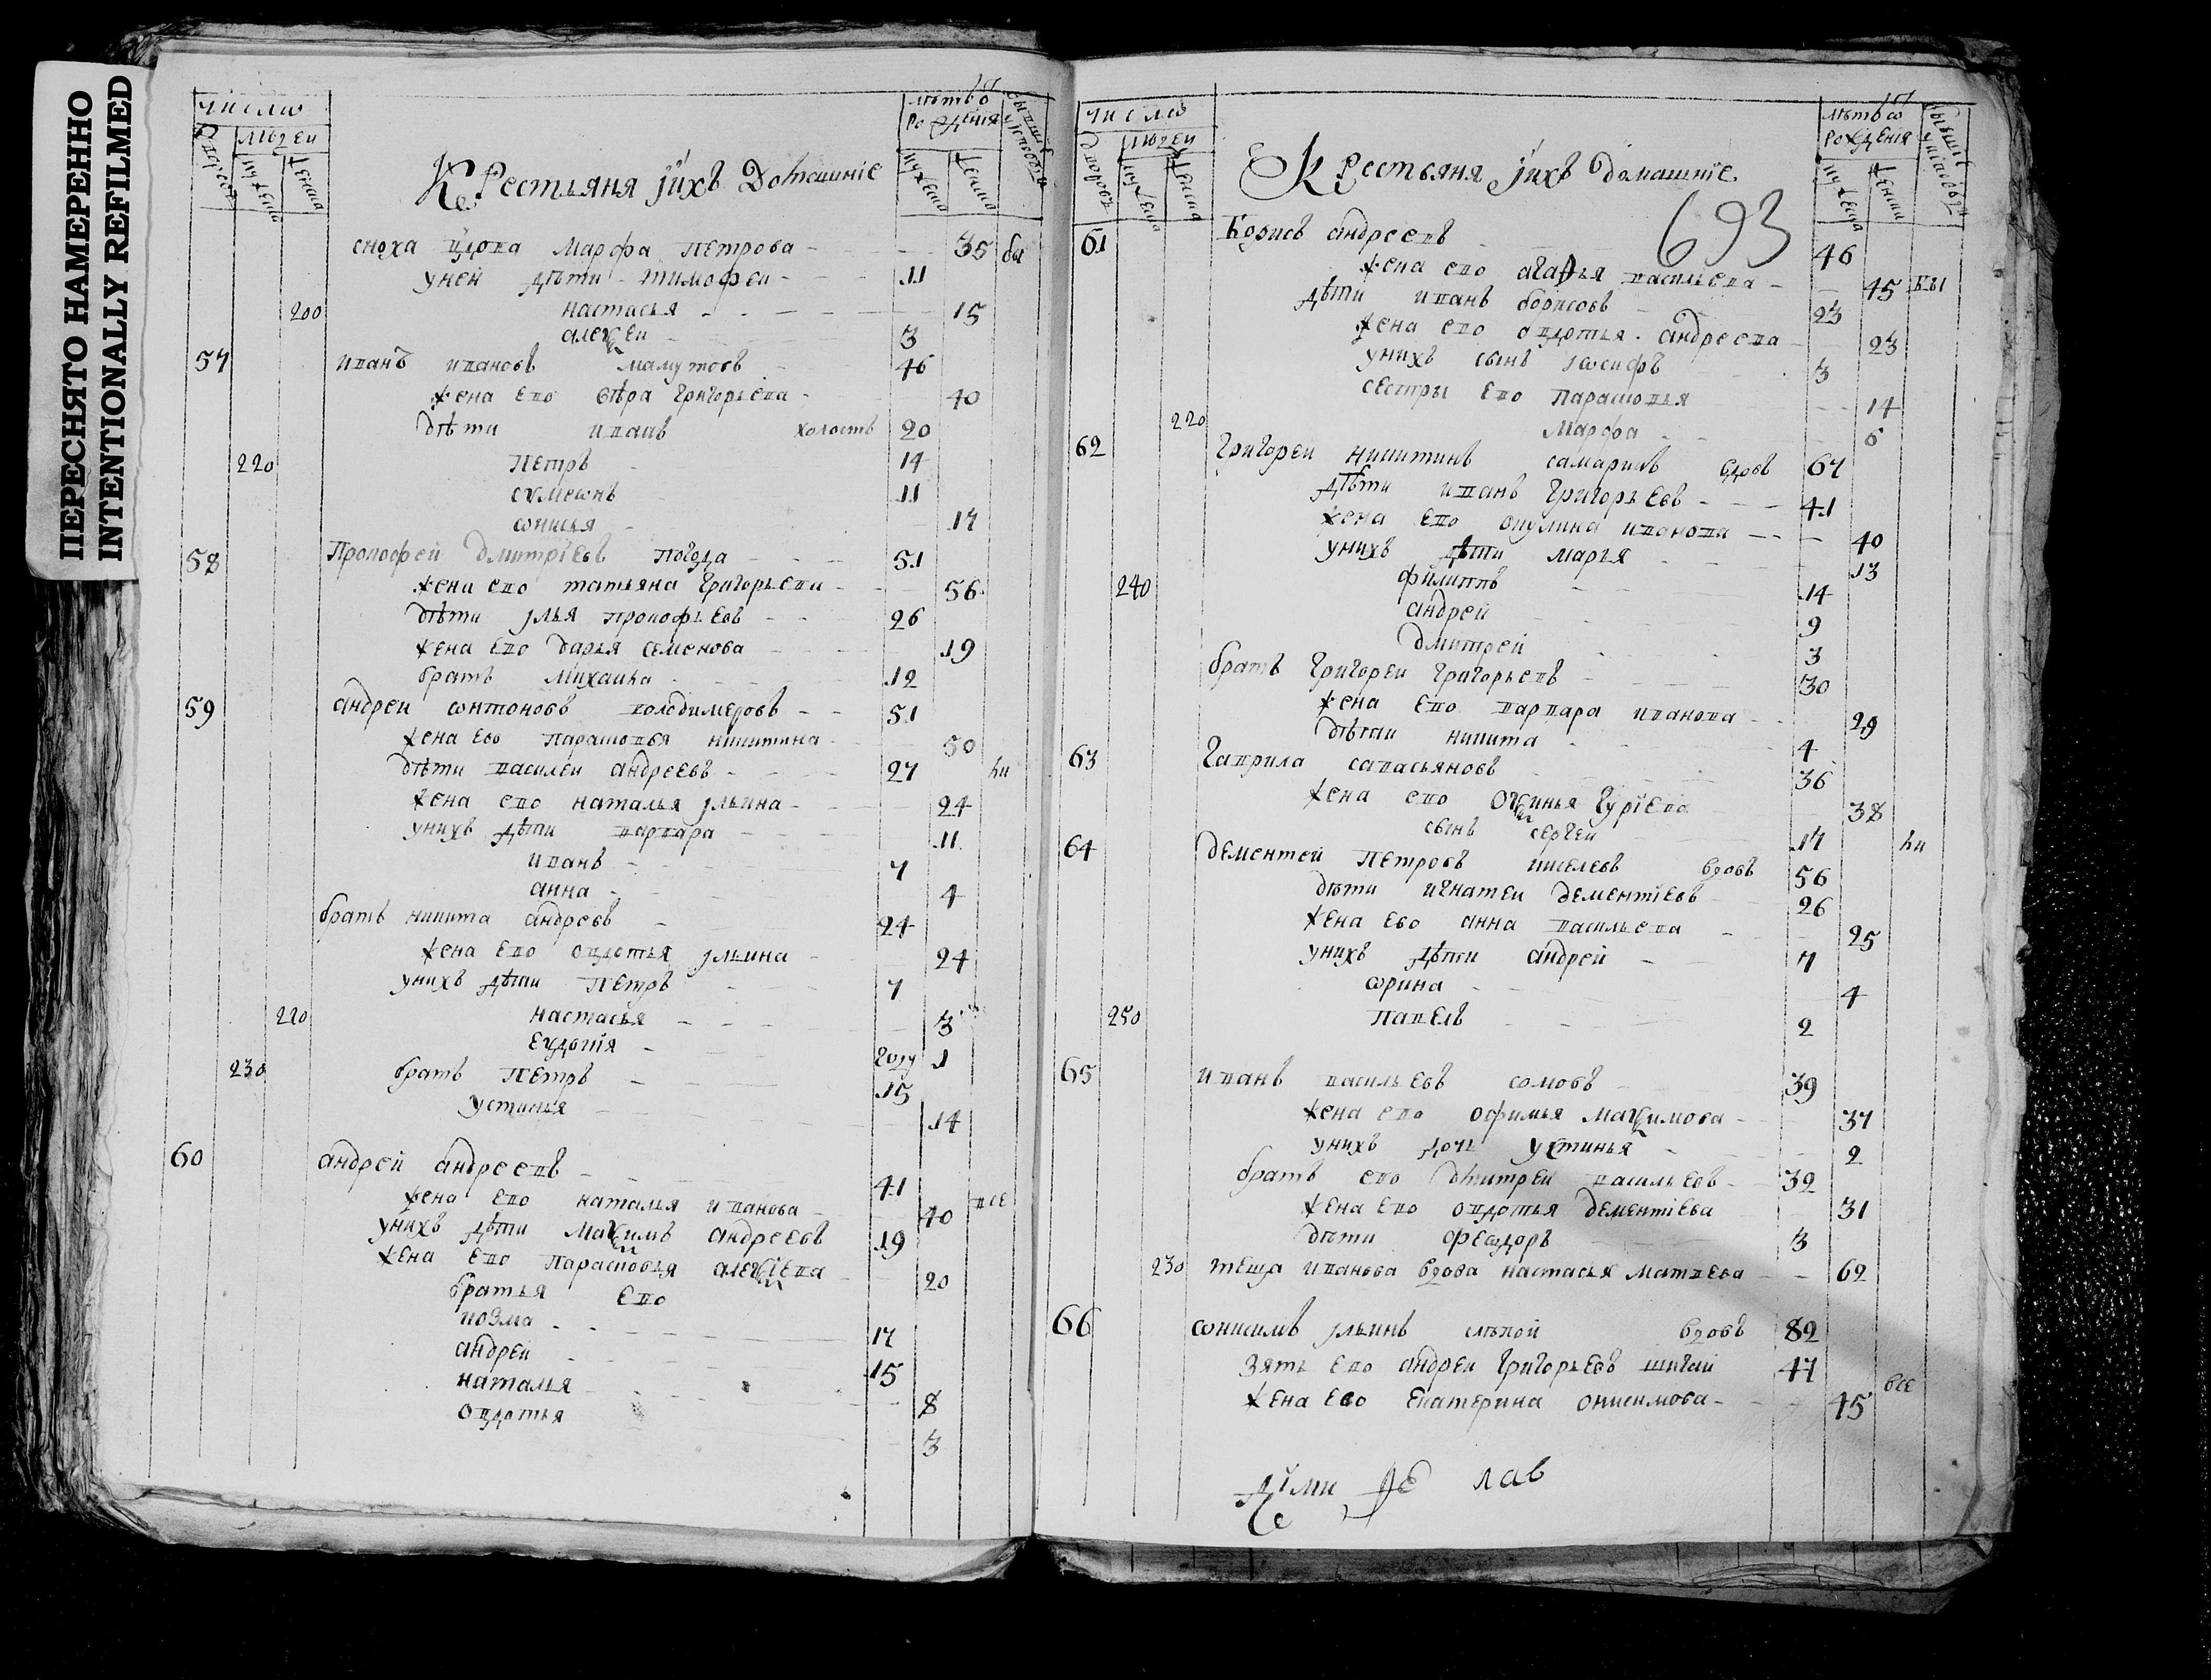 ПЕРЕСНЯТО НАМЕРЕННО
INTENTIONALLY REFILMED
число
людей
лѣтъ ѿ рождения
Крестьяня ихъ домашние
сноха вдова марфа петрова 35 бы
уней дѣти тимофеи 11
200 настасья 15
алеѯеи 3
57 иванъ ивановъ мамутовъ 46
жена ево вѣра григорьева 40
дѣти иванъ холостъ 20
220 петръ 14
сѵмеѡнъ 11
ѡнисья 17
58 Прокофей дмитриевъ погода 51
жена ево татьяна григорьева 56
дѣти илья прокофьевъ 26
жена ево дарья семенова 19
братъ михаила 12
59 андреи ѡнтоновъ володимеровъ 51
жена ево парасковья никитина 50
дѣти василеи андреевъ 27 ни
жена ево наталья ильина 24
унихъ дѣти варвара 11
иванъ 7
анна 4
братъ никита андреевъ 24
жена ево овдотья ильина 24
унихъ дѣти петръ 7
210 настасья 3
евдокия году 1
230 братъ петръ 15
устинья 14
60 андрей андреевъ 41
жена ево наталья иванова 40 все
унихъ дѣти маѯимъ андреевъ 19
жена ево парасковья алеѯиева 20
братья ево
козма 17
андреи 15
наталья 8
овдотья 3
число
людей
лѣтъ ѿ рождения
Крестьяня ихъ домашние
693
61 Борисъ андреевъ 46
жена ево агафья васильева 45 бы
дѣти иванъ борисовъ 23
жена ево овдотья андреева 23
унихъ сынъ иѡсифъ 3
сестры ево парасковья 14
220 марфа 6
62 григореи никитинъ самаринъ вдовъ 67
дѣти иванъ григорьевъ 41
жена ево окулина иванова 40
унихъ дѣти марья 13
240 филиппъ 14
андрей 9
дмитрей 3
братъ григореи григорьевъ 30
жена ево варвара иванова 29
дѣти никита 4
63 гаврила савасьяновъ 36
жена ево оѯинья гуриева 38
сынъ сергеи 17 ни
64 дементей петровъ киселевъ вдовъ 56
дѣти игнатеи дементиевъ 26
жена ево анна васильева 25
унихъ дѣти андрей 7
ѡрина 4
250 павелъ 2
65 иванъ васильевъ сомовъ 39
жена ево офимья маѯимова 37
унихъ дочь устинья 2
братъ ево дмитреи васильевъ 32
жена ево овдотья дементиева 31
дѣти феѡдоръ 3
230 теща иванова вдова настасья матвеева 62
66 ѡнисимъ ильинъ слѣпой вдовъ 82
зять ево андреи григорьевъ шигаи 47
жена ево екатерина онисимова 45 все